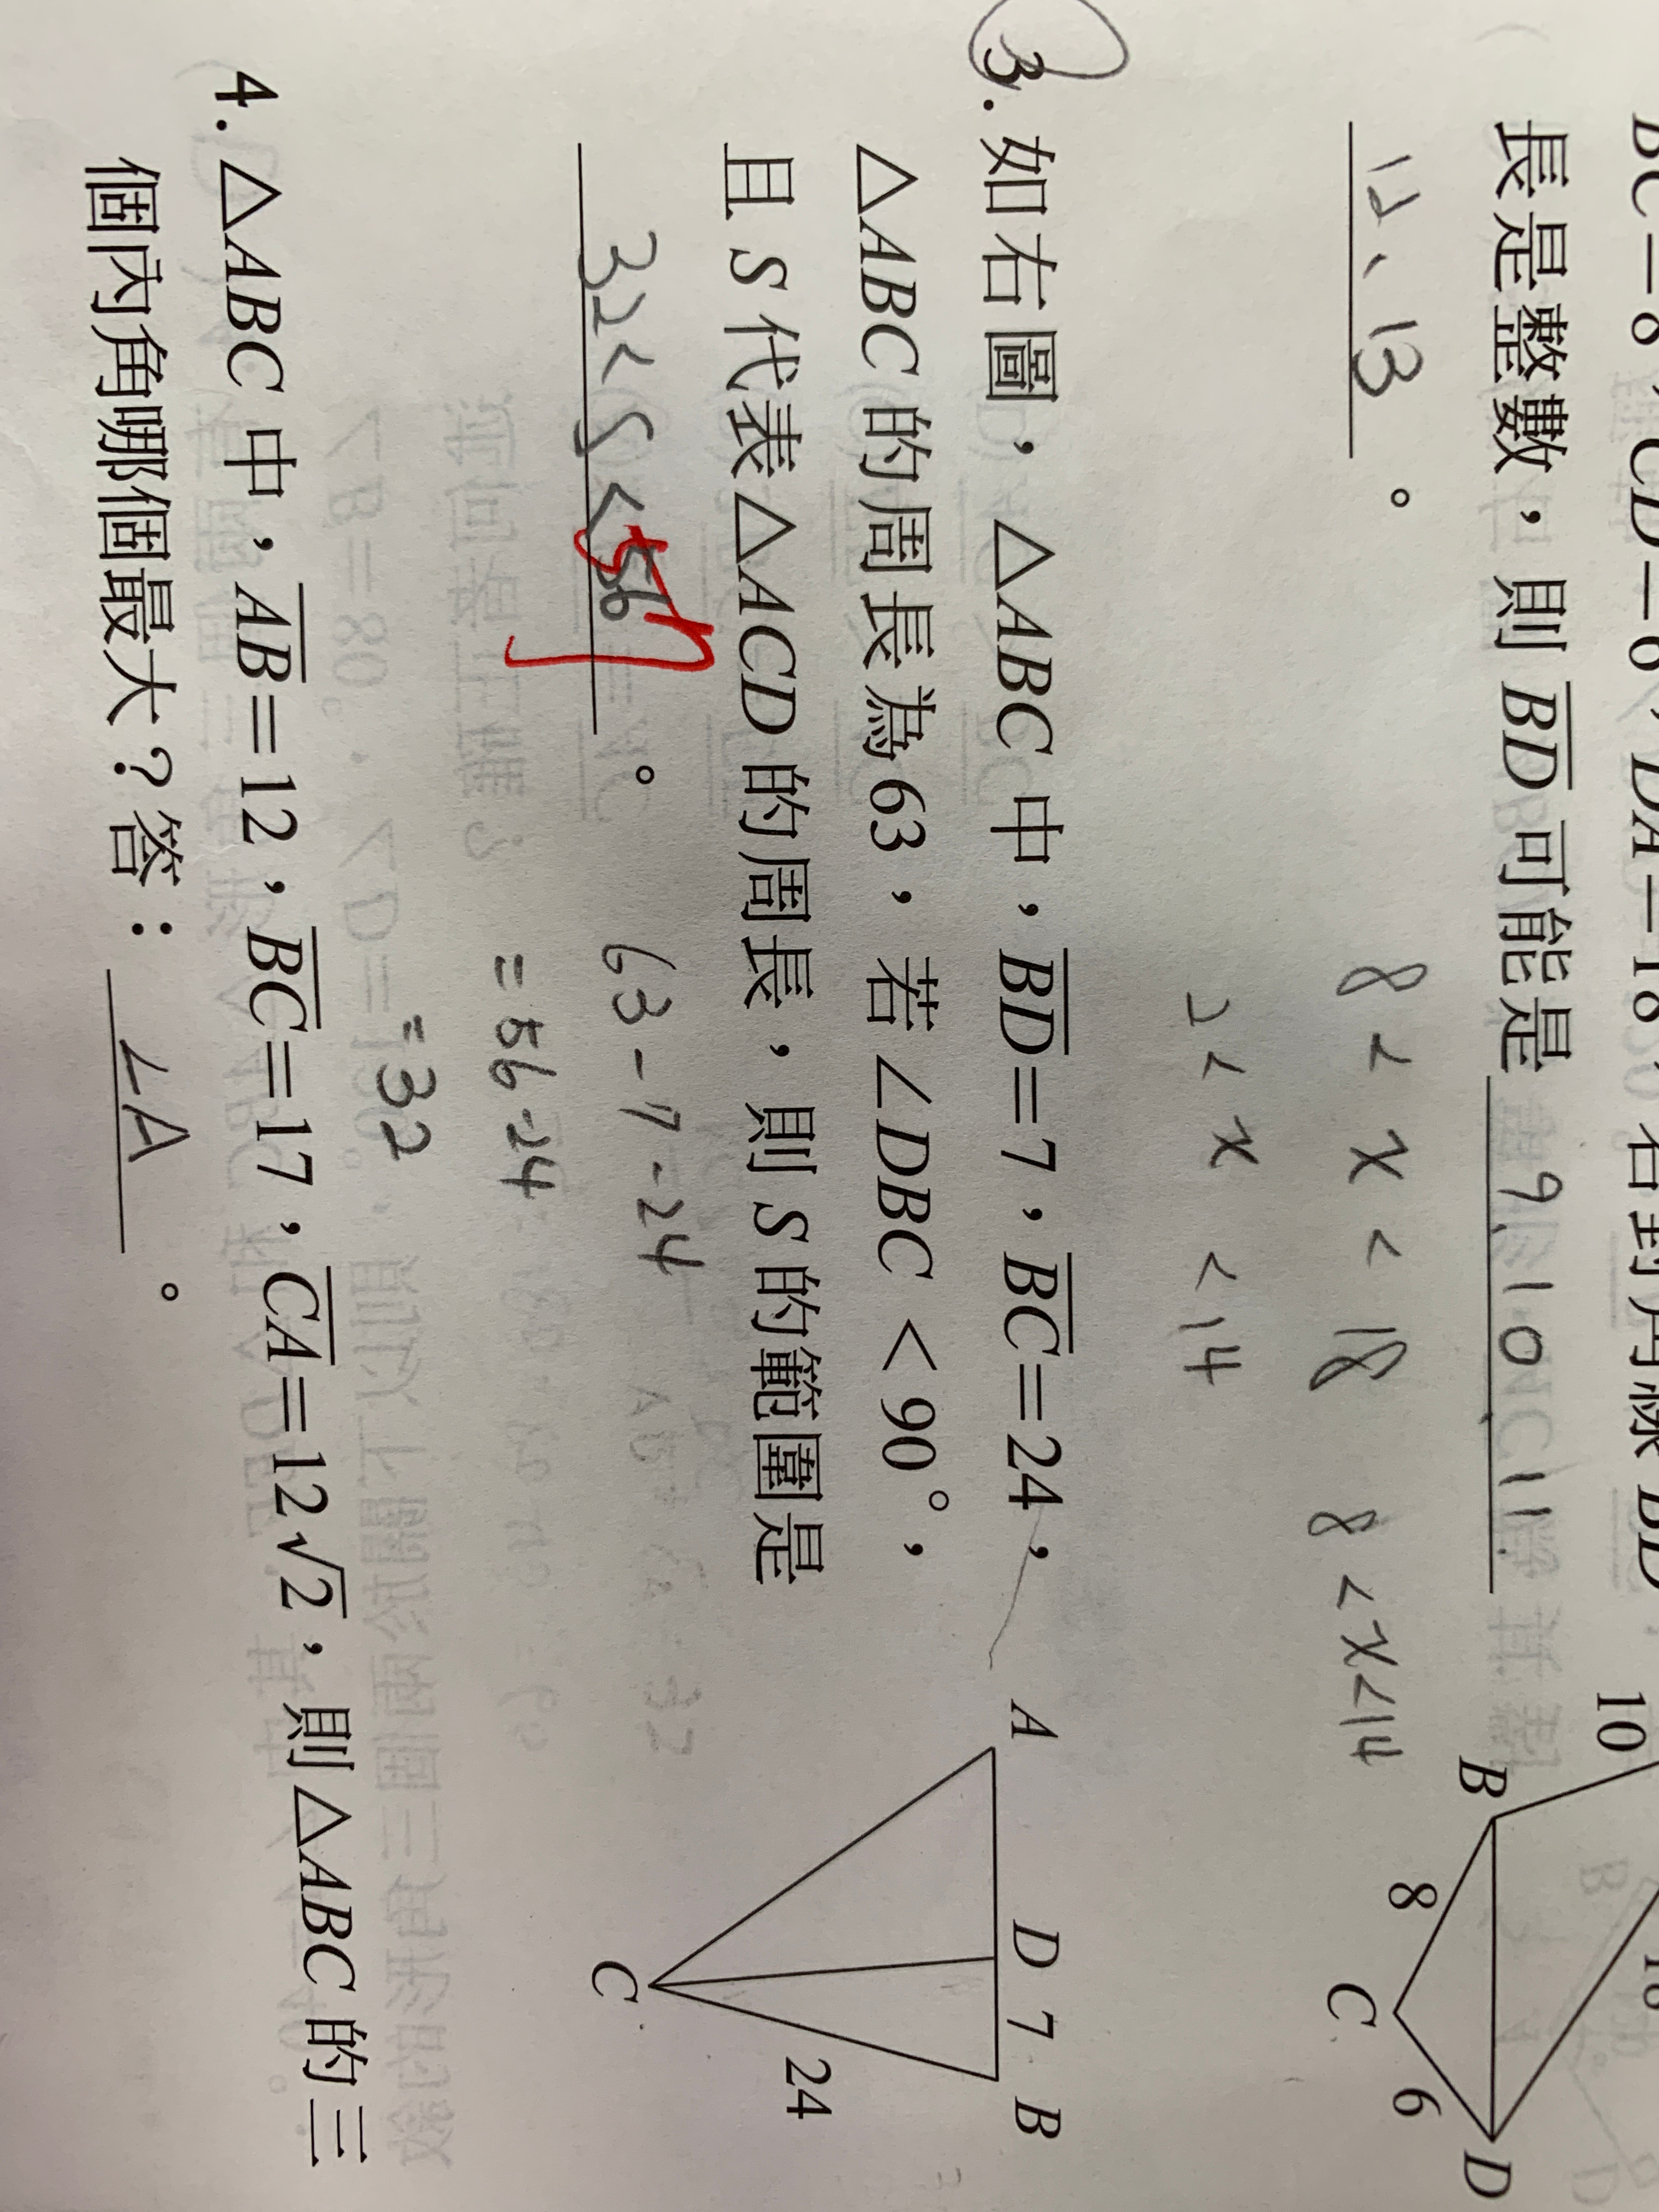 長是整數，則 BD 可能是 9.10.11.
12、13 。
8 < x < 18
8 < x < 14
2 < x < 14
10
B
8
C
6
D
3. 如右圖，△ABC 中，BD=7，BC=24，
△ABC 的周長為63，若∠DBC < 90°，
且 S 代表△ACD 的周長，則 S 的範圍是
32 < S < 57 。
63-7-24
=56-24
=32
A
D 7 B
24
C
4. △ABC 中，AB=12，BC=17，CA=12√2，則△ABC 的三
個內角哪個最大？答：∠A 。